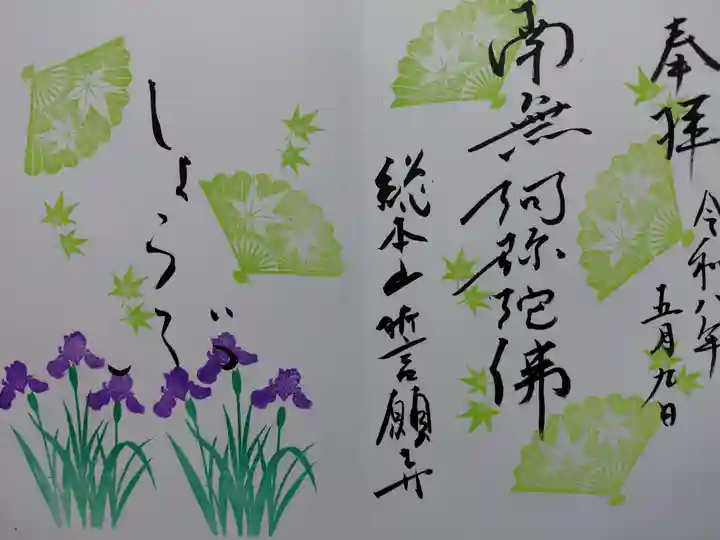 奉拝
令和八年
五月九日
南無阿弥陀佛
総本山誓願寺
しょうぶ